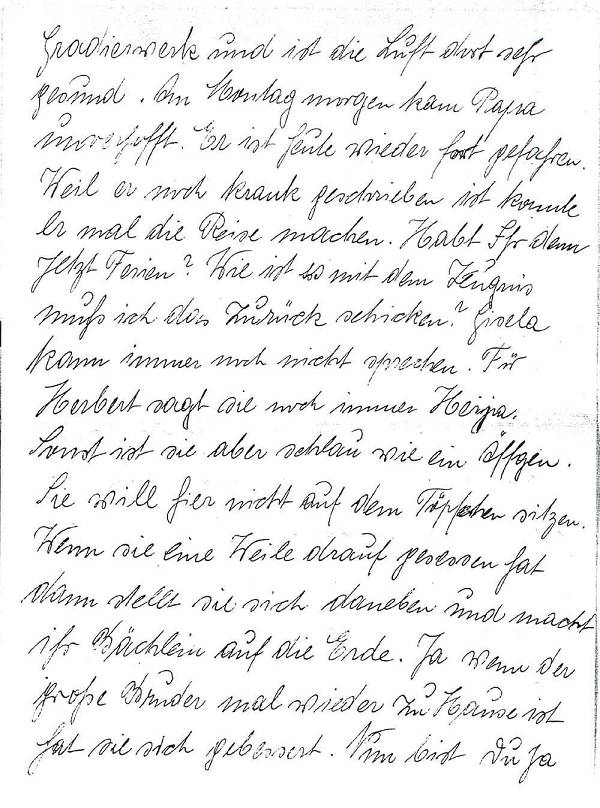 Gradierwerk und ist die Luft dort sehr
gesund. Am Montag morgen kam Papa
unverhofft. Er ist heute wieder fort gefahren.
Weil er noch krank geschrieben ist konnte
Er mal die Reise machen. Habt Ihr denn
Jetzt Ferien? Wie ist es mit dem Zeugnis
muß ich das zurück schicken? Gisela
kann immer noch nicht sprechen. Für
Herbert sagt sie noch immer Heija.
Sonst ist sie aber schlau wie ein Äffgen.
Sie will hier nicht auf dem Töpfchen sitzen.
Wenn sie eine Weile drauf gesessen hat
dann stellt sie sich daneben und macht
ihr Bächlein auf die Erde. Ja wenn der
große Bruder mal wieder zu Hause ist
hat sie sich gebessert. Nun bist Du ja